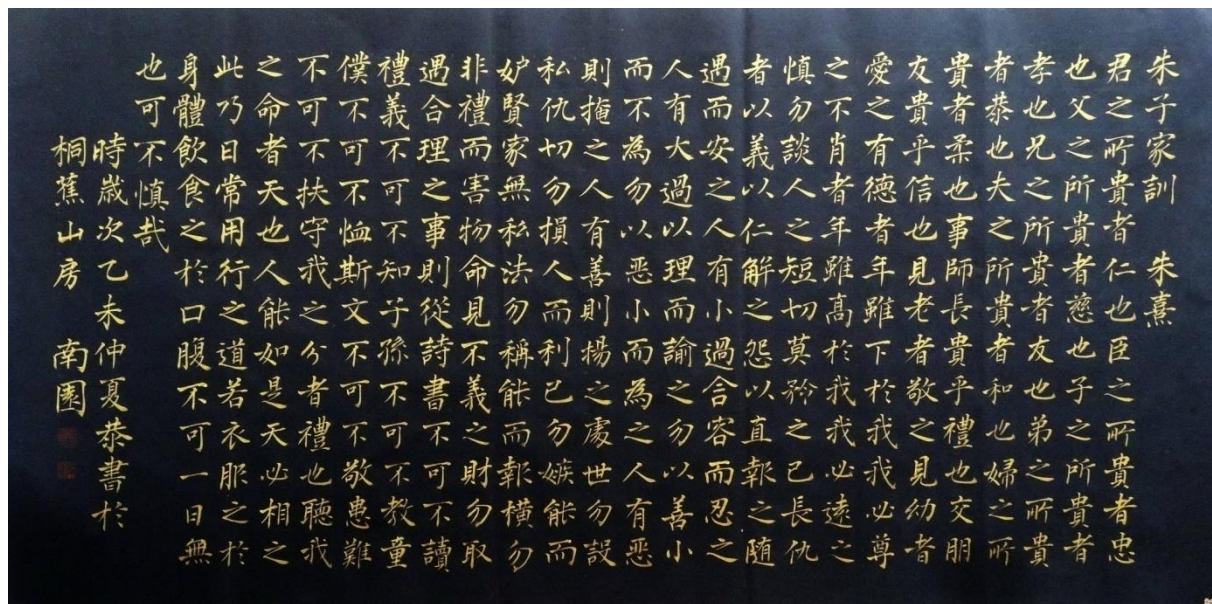 朱子家訓 朱熹
君之所貴者仁也臣之所貴者忠
也父之所貴者慈也子之所貴者
孝也兄之所貴者友也弟之所貴
者恭也夫之所貴者和也婦之所
貴者柔也事師長貴乎禮也交朋
友貴乎信也見老者敬之見幼者
愛之有德者年雖下於我我必尊
之不肖者年雖高於我我必遠之
慎勿談人之短切莫矜之己長仇
者以義以仁解之怨以直報之随
遇而安之人有小過合容而忍之
人有大過以理而諭之勿以善小
而不為勿以惡小而為之人有惡
則掩之人有善則揚之處世勿設
私仇切勿損人而利己勿嫉能而
妒賢家無私法勿稱能而報橫勿
非禮而害物命見不義之財勿取
遇合理之事則從詩書不可不讀
禮義不可不知子孫不可不教童
僕不可不恤斯文不可不敬患難
不可不扶守我之分者禮也聽我
之命者天也人能如是天必相之
此乃日常用行之道若衣服之於
身體飲食之於口腹不可一日無
也可不慎哉
時歲次乙未仲夏恭書於
桐蕉山房 南園